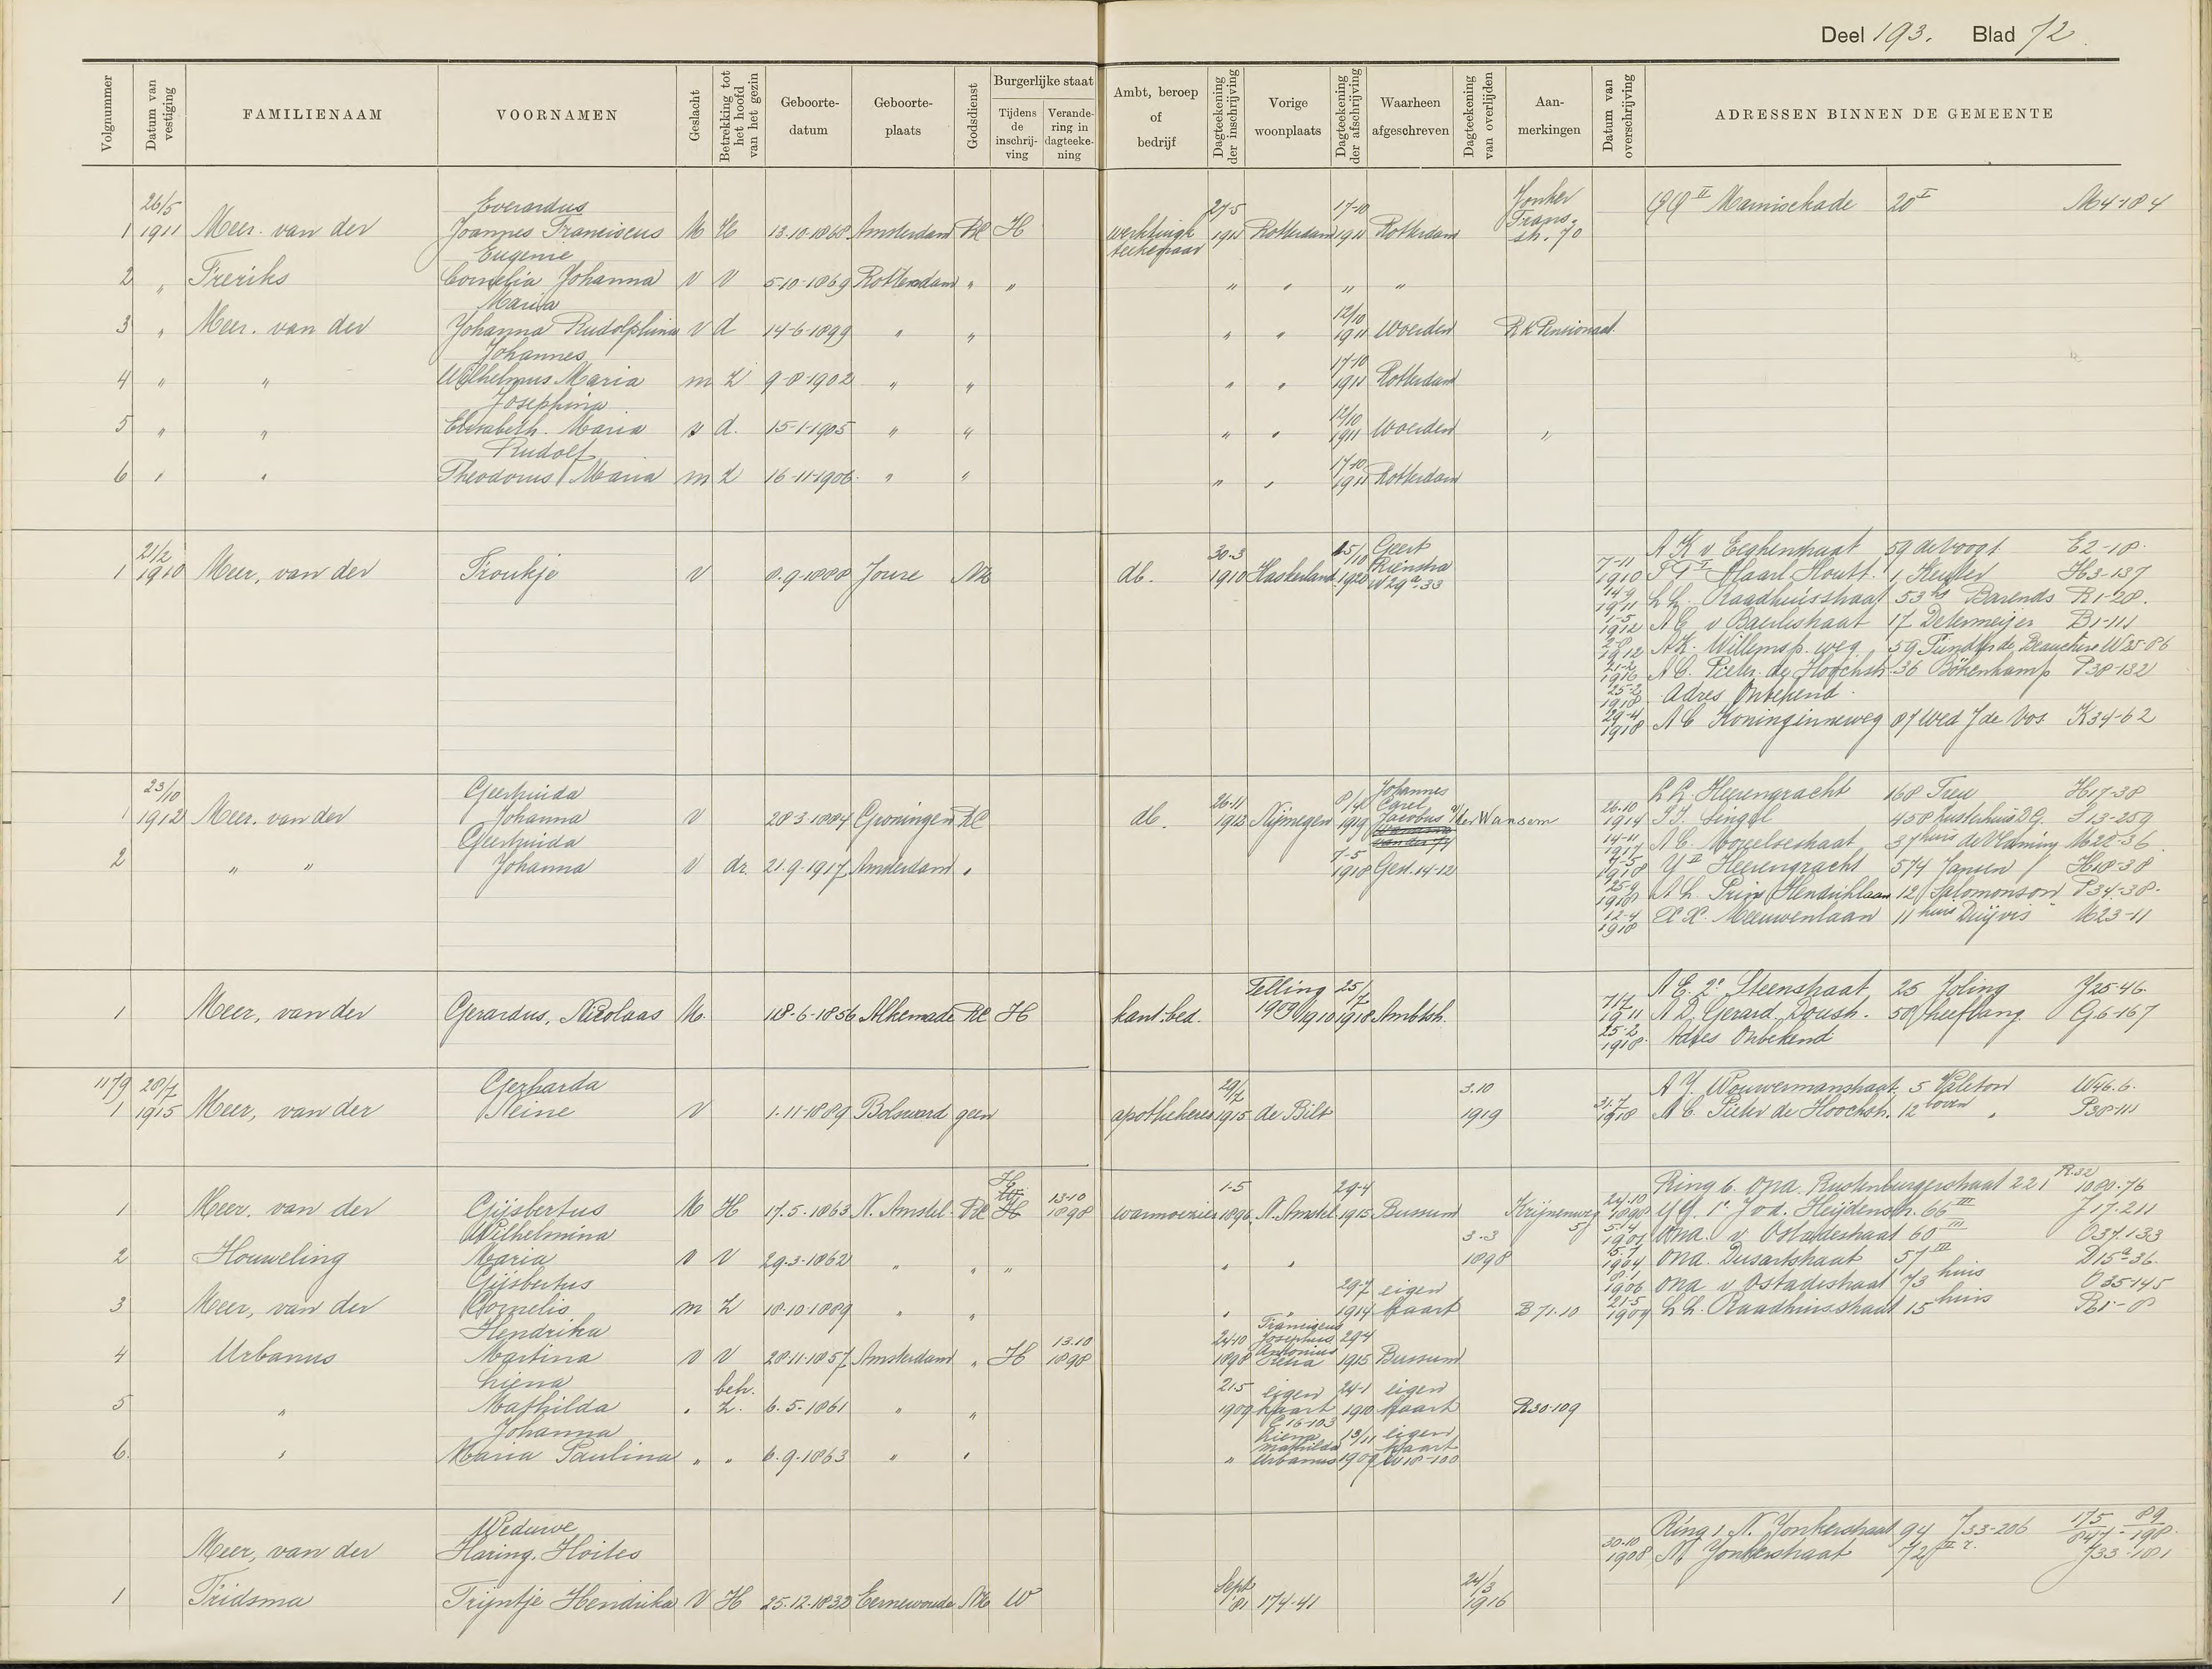 Deel 193. Blad 72.
Volgnummer | Datum van vestiging | FAMILIENAAM | VOORNAMEN | Geslacht | Betrekking tot het hoofd van het gezin | Geboorte-datum | Geboorte-plaats | Godsdienst | Burgerlijke staat | Tijdens de inschrijving | Verandering in dagteekening | Ambt, beroep of bedrijf | Dagteekening der inschrijving | Vorige woonplaats | Dagteekening der afschrijving | Waarheen afgeschreven | Dagteekening van overlijden | Aanmerkingen | Datum van overschrijving | ADRESSEN BINNEN DE GEMEENTE
26/5 Everardus 27-5 17-10 Jonker
1 1911 Meer. van der Joannes Franciscus M H 13-10-1868 Amsterdam RC H 1911 Rotterdam 1911 Rotterdam Frans- str. 70 II 20 I M4-184
Eugenie
2 " Freriks Cornelia Johanna V V 5-10-1869 Rotterdam " " " " " "
Maria 12/10
3 " Meer. van der Johanna Rudolphina V d 14-6-1899 " " " " 1911 Woerden RK Pensionaat
Johannes 17-10
4 " " Wilhelmus Maria m Z 9-8-1902 " " " " 1911 Rotterdam
Josephina 12/10
5 " " Elisabeth. Maria v d. 15-1-1905 " " " " 1911 Woerden "
Rudolf 17-10
6 " " Theodorus Maria m Z 16-11-1906 " " " " 1911 Rotterdam
21/2 30-3 15/10 Geert
1 1910 Meer, van der Froukje V 8-9-1888 Joure NH db. 1910 Haskerland 1920 Rienstra W29a-33
A K v Eeghenstraat 59 de Voogt E2-18
7-11 1910 Haarl. Houtt. 1 Keuler H3-137
14-9 1911 L L. Raadhuisstraat 53 hs Barends R1-28.
1-5 1912 A E v Baerlestraat 17 Determeijer B1-111
2-8 1912 A K. Willemsp. weg 59 W25-86
21-2 1916 A C. Pieter de Hoochstr. 36 Bökenkamp P38-132
25-2 1918 Adres Onbekend
29-4 1918 A C Koninginneweg 87 Wed J de Vos. K34-62
23/10 Geertruida 26-11 8/4 Johannes Carel
1 1912 Meer. van der Johanna V 28-3-1884 Groningen RC db. 1912 Nijmegen 1919 Jacobus v/der Wansem
Geertruida 7-5
2 " " Johanna V dr. 21-9-1917 Amsterdam " 1918 Ged. 14-12
L L. Heerengracht 168 Treu H17-38
26-10 1914 Singel 458 Zusterhuis D.G. S13-259
14-11 1917 A C. Moreelsestraat 37 huis de Vlaming M22-36
4-5 1918 Y II Heerengracht 574 Jansen H18-38
25-9 1918 A L. Prins Hendriklaan 12 Salomonson P34-38.
12-4 1918 Meeuwenlaan 11 huis Duijvis M23-11
1 Meer, van der Gerardus, Nicolaas M. 18-6-1856 Alkemade RC H kant. bed. Telling 1909/1910 25/7 1918 Ambtsh.
A E. 2e Steenstraat 25 Joling J25-46.
7/7 1911 A D. Gerard Doustr. 58 Leeflang G6-167
25-2 1918 Adres Onbekend
1179 28/7 Gerharda 29/7 3.10
1 1915 Meer, van der Neine V 1-11-1889 Bolsward geen apothekeres 1915 de Bilt 1919
A Y. Wouwermanstraat 5 Valeton W46.6.
31-7 1918 A C. Pieter de Hoochstr. 12 boven " P38-111
H 13-10 1-5 29-4
1 Meer. van der Gijsbertus M H 17-5-1863 N. Amstel RC H 1898 warmoezier 1896 N. Amstel 1915 Bussum Krijnenweg 5
Wilhelmina 3-3
2 Houweling Maria V V 29-3-1862 " " " " " 1898
Gijsbertus 29-7 eigen
3 Meer, van der Cornelis m Z 18-10-1889 " " " " 1914 kaart B 71.10
Hendrika 13.10 24-10 Franciscus Josephus 29-4
4 Urbanus Martina V V 28-11-1857 Amsterdam " H 1898 1898 Antonius 1915 Bussum
Liena beh. 21-5 eigen 24-1 eigen
5 " Mathilda " Z. 6-5-1861 " " 1909 kaart 1910 kaart R30-109
Johanna C16-103 Liena 13/11 eigen
6. " Maria Paulina " " 6-9-1863 " " " Mathilda Urbanus 1909 kaart W18-100
Ring 6. Ona. Rustenburgerstraat 221 R.32 1080.76
24-10 1898 YY. 1e Jod. Heijdenstr. 66 III J17.211
5/4 1901 Ona. v Ostadestraat 60 III O37.133
15-7 1904 Ona. Dusartstraat 57 III D15a-36.
8-1 1906 Ona v Ostadestraat 173 huis O35-145
21-5 1909 L L. Raadhuisstraat 15 huis R1-8
Weduwe
Meer, van der Haring. Hoites
1 Fridsma Trijntje Hendrika V H 25-12-1832 Eernewoude NH W Sept '81 174-41 24/3 1916
Ring 1 N. Jonkerstraat 94 J33-206 175 89 847 - 198.
30-10 1908 N Jonkerstraat 72 II r. J33-181